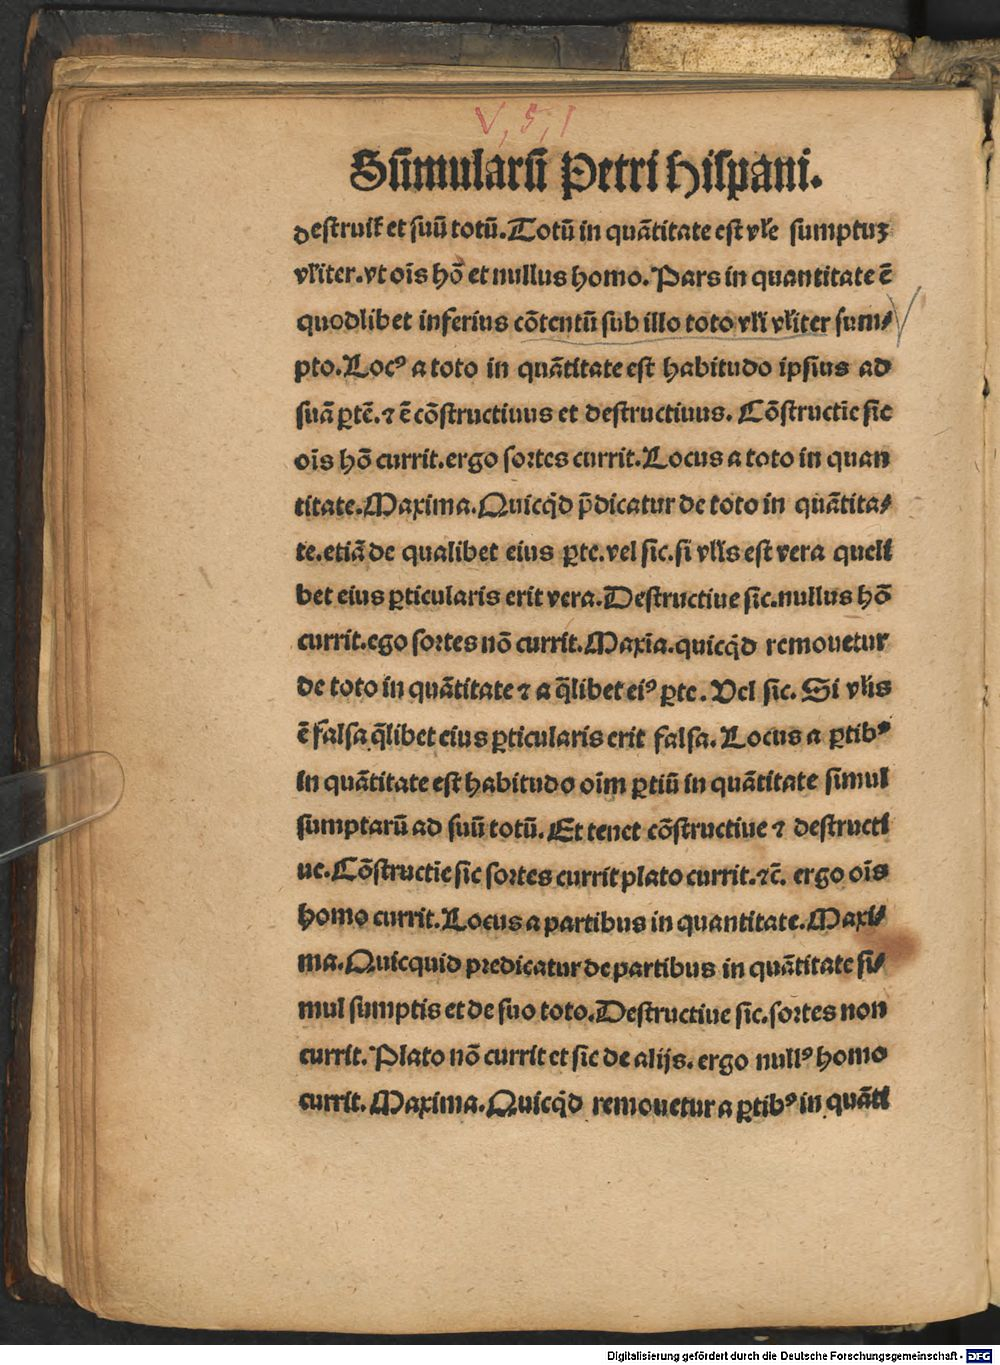 V, 5, 1
Sūmularū Petri Hispani.
destruiť et suū totū. Totū in quātitate est vľe sumptuʒ
vľiter. vt oīs hō et nullus homo. Pars in quantitate ē
quodlibet inferius cōtentū sub illo toto vľi vľiter sum⸗
pto. Locꝰ a toto in quātitate est habitudo ipsius ad
suā ꝑtē. ⁊ ē cōstructiuus et destructiuus. Cōstructīe sic
oīs hō currit. ergo soꝛtes currit. Locus a toto in quan
titate. Maxima. Quicq̇d p̄dicatur de toto in quātita⸗
te. etiā de qualibet eius ꝑte. vel sic. si vľis est vera queli
bet eius ꝑticularis erit vera. Destructiue sic. nullus hō
currit. ego soꝛtes nō currit. Maxīa. quicq̇d remouetur
de toto in quātitate ⁊ a q̄libet eiꝰ ꝑte. Vel sic. Si vľis
ē falsa q̄libet eius ꝑticularis erit falsa. Locus a ꝑtibꝰ
in quātitate est habitudo oīm ꝑtiū in quātitate simul
sumptarū ad suū totū. Et tenet cōstructiue ⁊ destructi
ue. Cōstructīe sic soꝛtes currit plato currit. ⁊c̄. ergo oīs
homo currit. Locus a partibus in quantitate. Maxi⸗
ma. Quicquid pꝛedicatur de partibus in quātitate si⸗
mul sumptis et de suo toto. Destructiue sic. soꝛtes non
currit. Plato nō currit et sic de alijs. ergo nullꝰ homo
currit. Maxima. Quicq̇d remouetur a ꝑtibꝰ in quāti
Digitalisierung gefördert durch die Deutsche Forschungsgemeinschaft - DFG